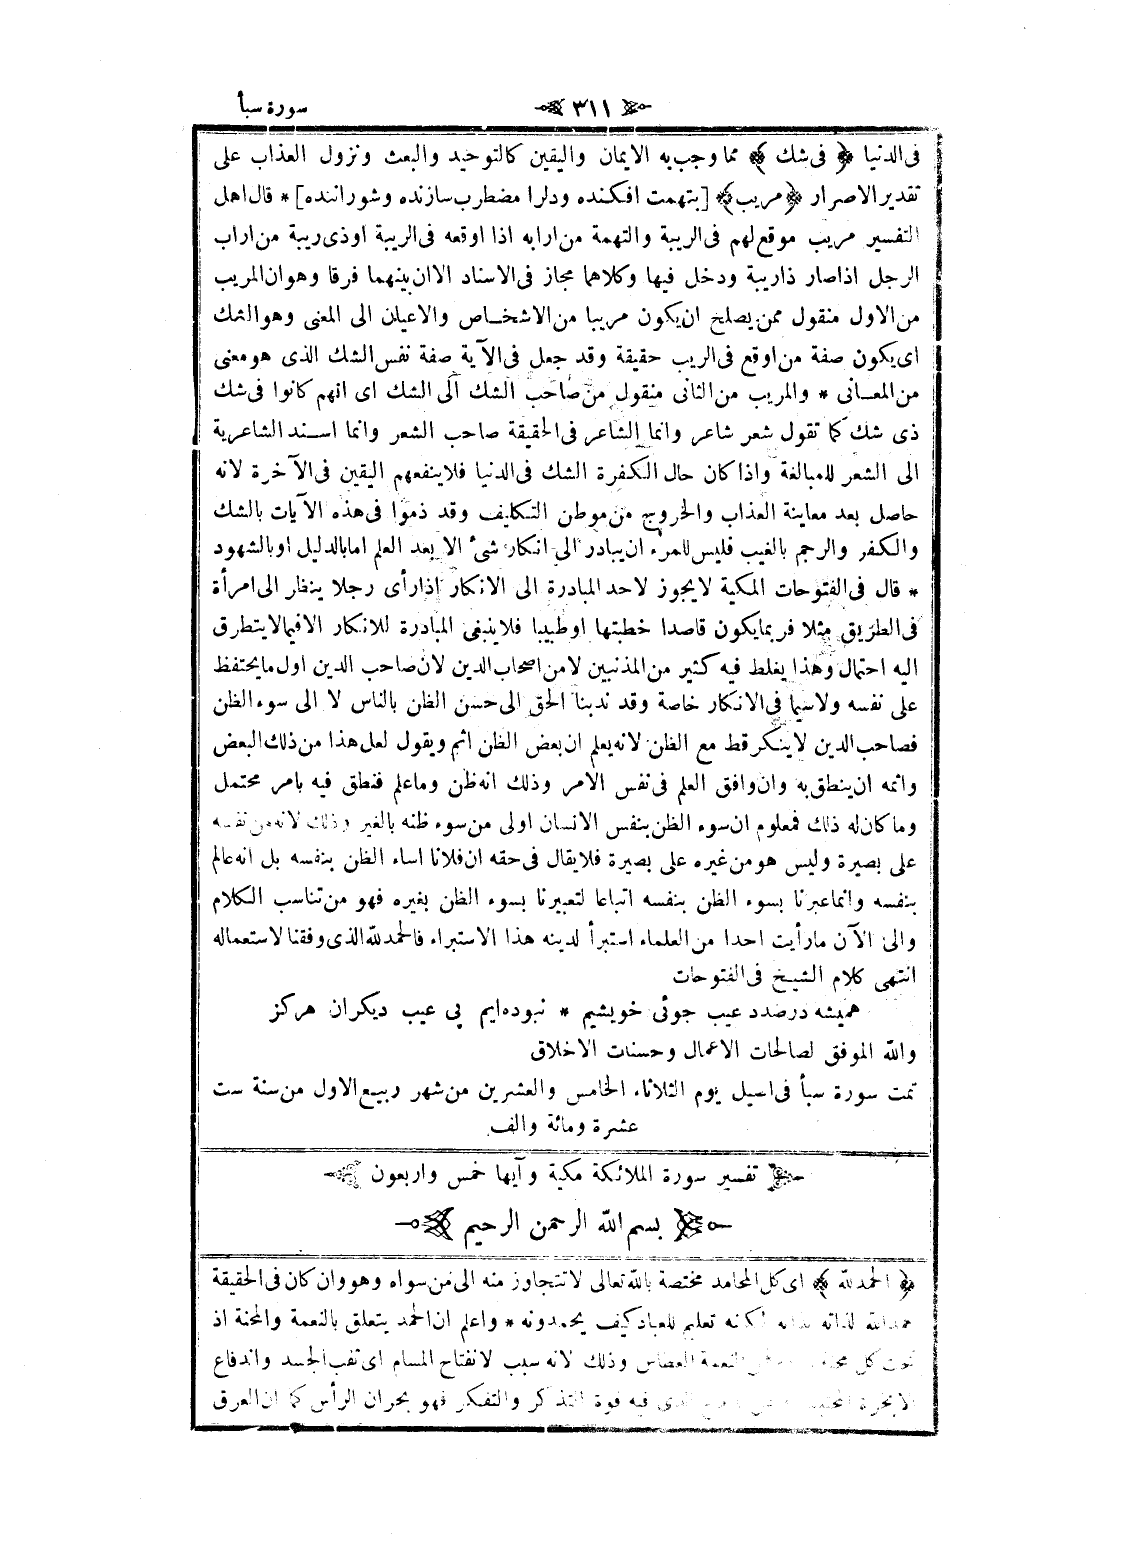 سورة سبأ ٣١١
فى الدنيا ﴿ فى شك ﴾ مما وجب به الايمان واليقين كالتوحيد والبعث ونزول العذاب على
تقدير الاصرار ﴿ مريب ﴾ [بتهمت افكنده ودلرا مضطرب سازنده وشوراننده] * قال اهل
التفسير مريب موقع لهم فى الريبة والتهمة من ارابه اذا اوقعه فى الريبة او ذى ريبة من اراب
الرجل اذا صار ذا ريبة ودخل فيها وكلاهما مجاز فى الاسناد الا ان بينهما فرقا وهو ان المريب
من الاول منقول ممن يصلح ان يكون مريبا من الاشخاص والاعيان الى المعنى وهو الشك
اى يكون صفة من اوقع فى الريب حقيقة وقد جعل فى الآية صفة نفس الشك الذى هو معنى
من المعانى * والمريب من الثانى منقول من صاحب الشك الى الشك اى انهم كانوا فى شك
ذى شك كما تقول شعر شاعر وانما الشاعر فى الحقيقة صاحب الشعر وانما اسند الشاعرية
الى الشعر للمبالغة واذا كان حال الكفرة الشك فى الدنيا فلا ينفعهم اليقين فى الآخرة لانه
حاصل بعد معاينة العذاب والخروج من موطن التكليف وقد ذموا فى هذه الآيات بالشك
والكفر والرجم بالغيب فليس للمرء ان يبادر الى انكار شئ الا بعد العلم اما بالدليل او بالشهود
* قال فى الفتوحات المكية لا يجوز لاحد المبادرة الى الانكار اذا رأى رجلا ينظر الى امرأة
فى الطريق مثلا فربما يكون قاصدا خطبتها او طبيبا فلا ينبغى المبادرة للانكار الا فيما لا يتطرق
اليه احتمال وهذا يغلط فيه كثير من المذنبين لا من اصحاب الدين لان صاحب الدين اول ما يحتفظ
على نفسه ولا سيما فى الانكار خاصة وقد ندبنا الحق الى حسن الظن بالناس لا الى سوء الظن
فصاحب الدين لا ينكر قط مع الظن لانه يعلم ان بعض الظن اثم ويقول لعل هذا من ذلك البعض
واثمه ان ينطق به وان وافق العلم فى نفس الامر وذلك انه ظن وما علم فنطق فيه بامر محتمل
وما كان له ذلك فمعلوم ان سوء الظن بنفس الانسان اولى من سوء ظنه بالغير وذلك لانه من نفسه
على بصيرة وليس هو من غيره على بصيرة فلا يقال فى حقه ان فلانا اساء الظن بنفسه بل انه عالم
بنفسه وانما عبرنا بسوء الظن بنفسه اتباعا لتعبيرنا بسوء الظن بغيره فهو من تناسب الكلام
والى الآن ما رأيت احدا من العلماء استبرأ لدينه هذا الاستبراء فالحمد لله الذى وفقنا لاستعماله
انتهى كلام الشيخ فى الفتوحات
هميشه در صدد عيب جوئى خويشيم * نبوده ايم پى عيب ديكران هركز
والله الموفق لصالحات الاعمال وحسنات الاخلاق
تمت سورة سبأ فى اصيل يوم الثلاثاء الخامس والعشرين من شهر ربيع الاول من سنة ست
عشرة ومائة والف
تفسير سورة الملائكة مكية وآيها خمس واربعون
بسم الله الرحمن الرحيم
﴿ الحمد لله ﴾ اى كل المحامد مختصة بالله تعالى لا تتجاوز منه الى من سواه وهو وان كان فى الحقيقة
حمد الله لذاته بذاته لكنه تعليم للعباد كيف يحمدونه * واعلم ان الحمد يتعلق بالنعمة والمحنة اذ
تحت كل محنة النعمة العطاس وذلك لانه سبب لانفتاح المسام اى ثقب الجسد واندفاع
الابخرة الذى فيه قوة التذكر والتفكر فهو بحران الرأس كما ان العرق